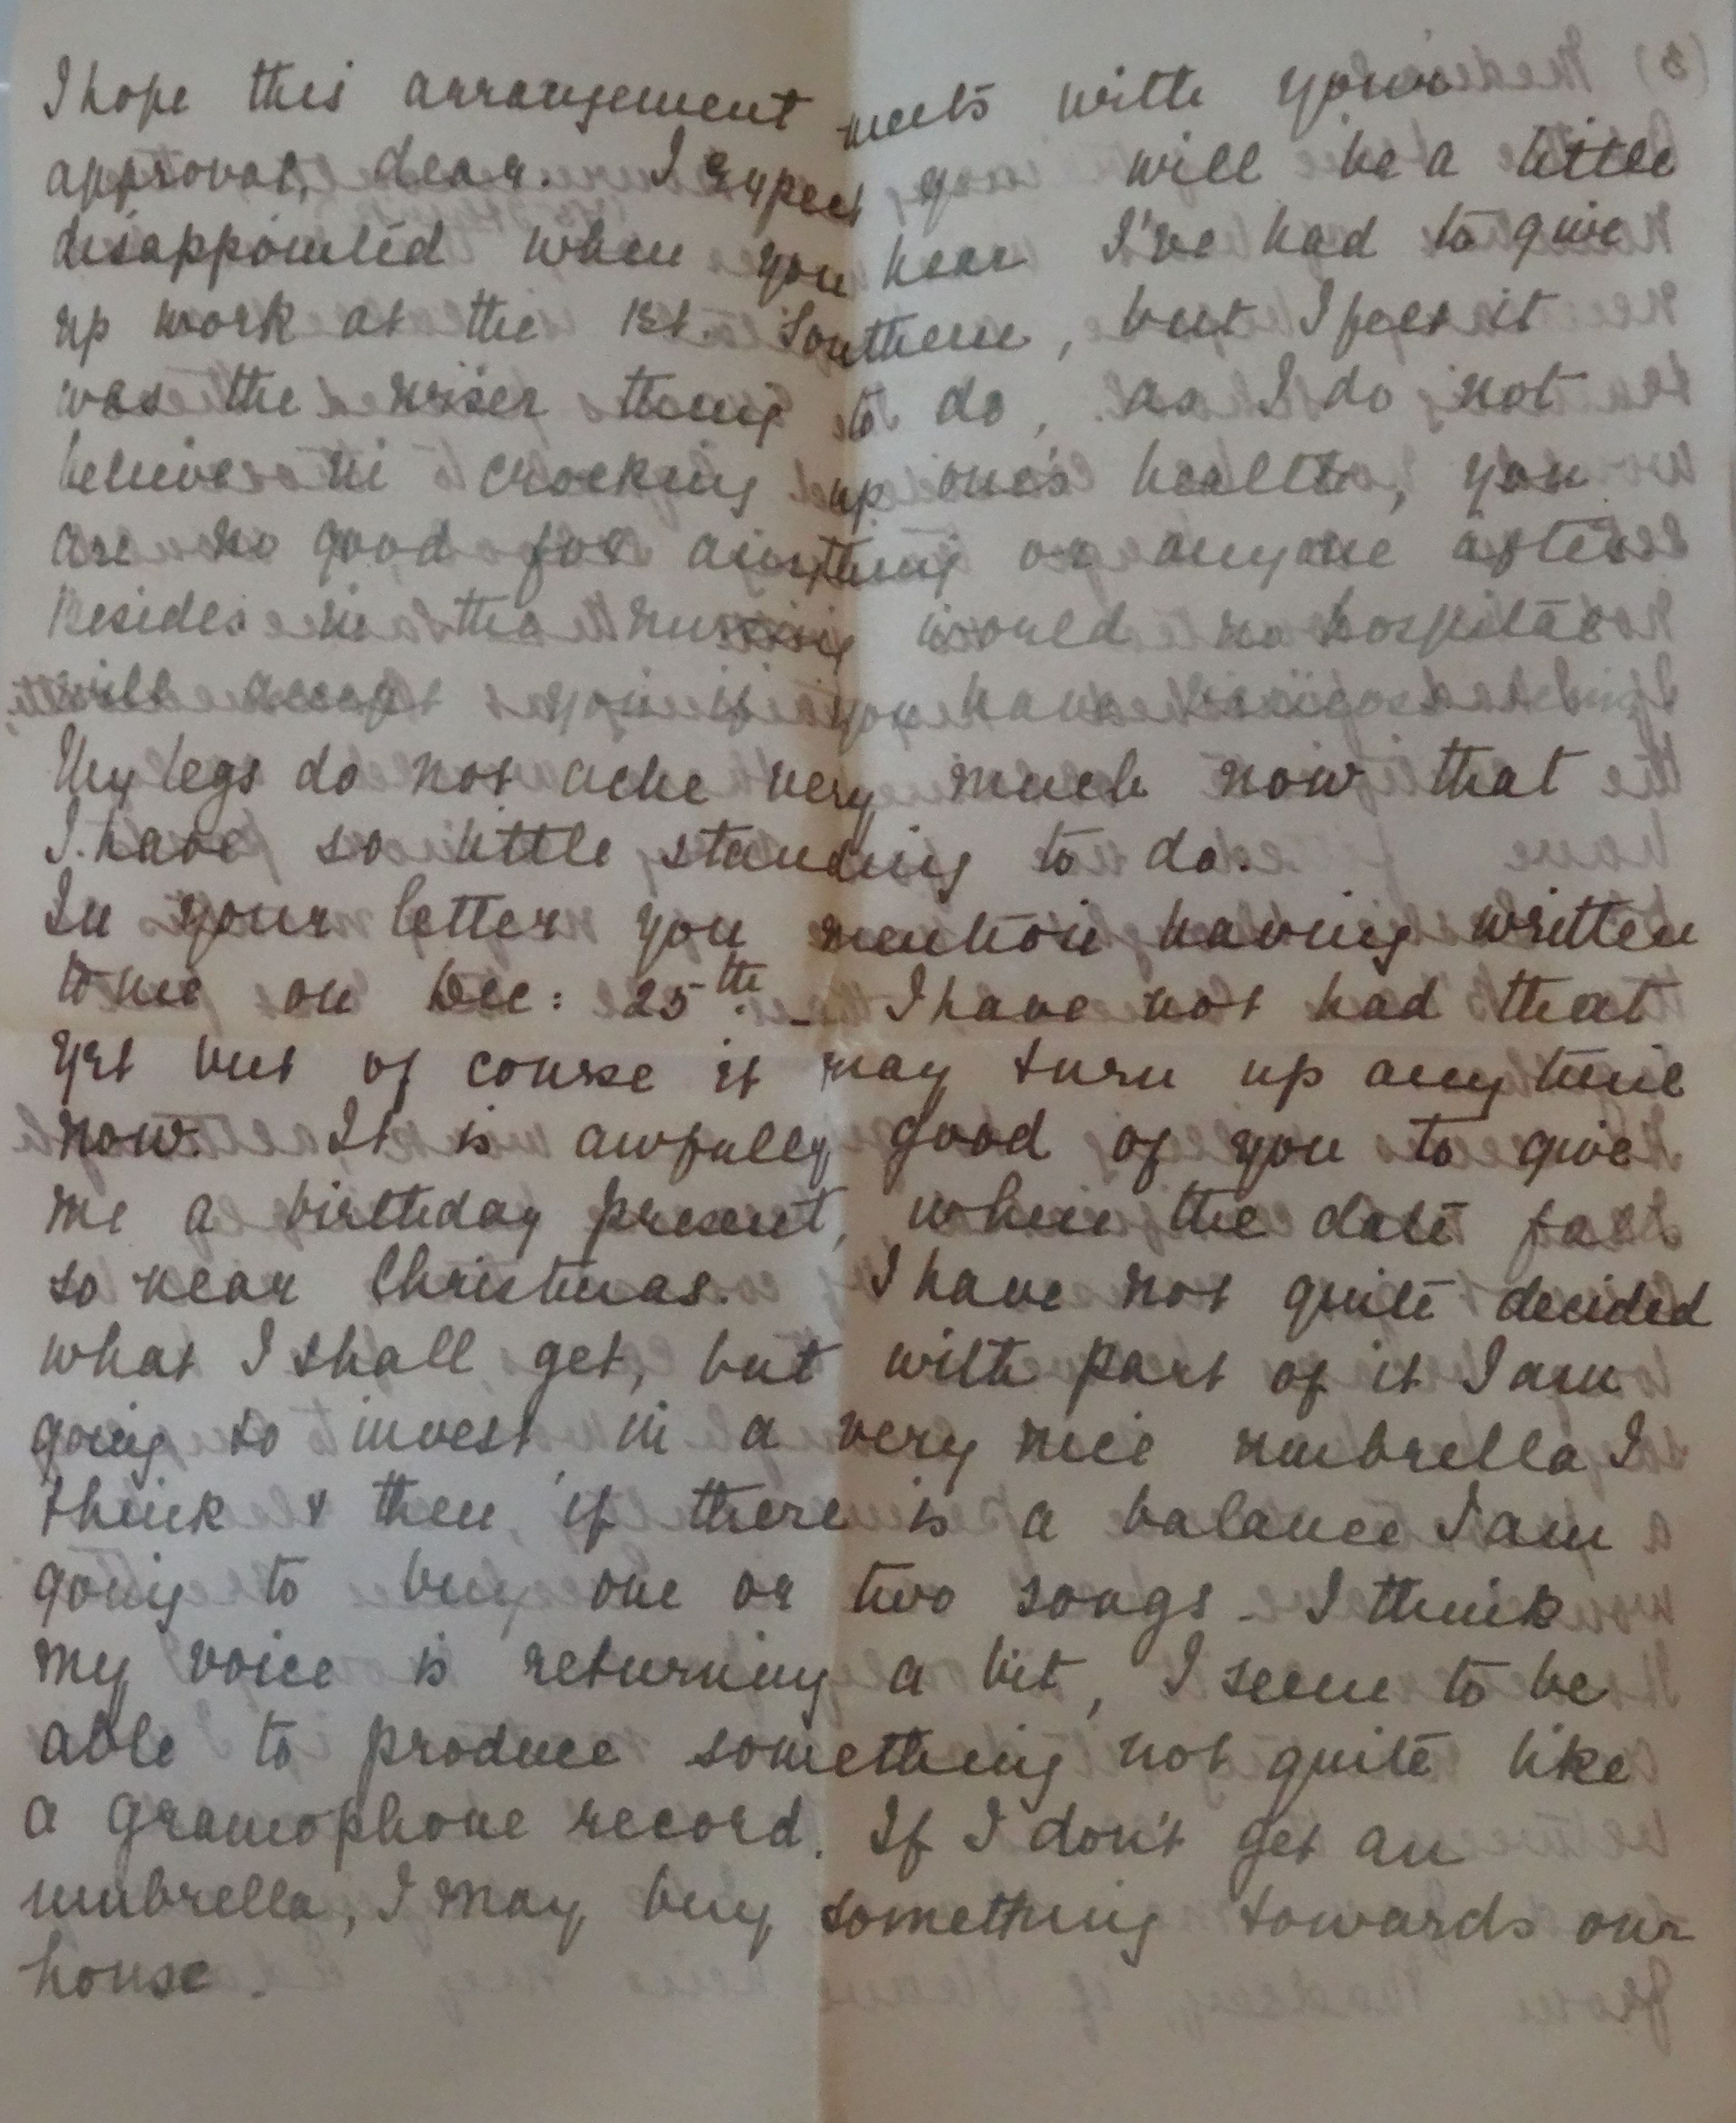 I hope this arrangement meets with your
approval, dear. I expect you will be a little
disappointed when you hear I've had to give
up work at the 1st. Southern, but I felt it
was the wiser thing to do, as I do not
believe in crocking up one's health, you
are no good for anything or anyone after
Besides in the nursing world no hospital
will accept you if you have varicose
My legs do not ache very much now that
I have so little standing to do.
In your letter you mention having written
to me on Dec: 25th. I have not had that
yet but of course it may turn up anytime
now. It is awfully good of you to give
me a birthday present, when the date fall
so near Christmas. I have not quite decided
what I shall get, but with part of it I am
going to invest in a very nice umbrella I
think & then, if there is a balance I am
going to buy one or two songs - I think
my voice is returning a bit, I seem to be
able to produce something not quite like
a gramophone record. If I don't get an
umbrella, I may buy something towards our
house.